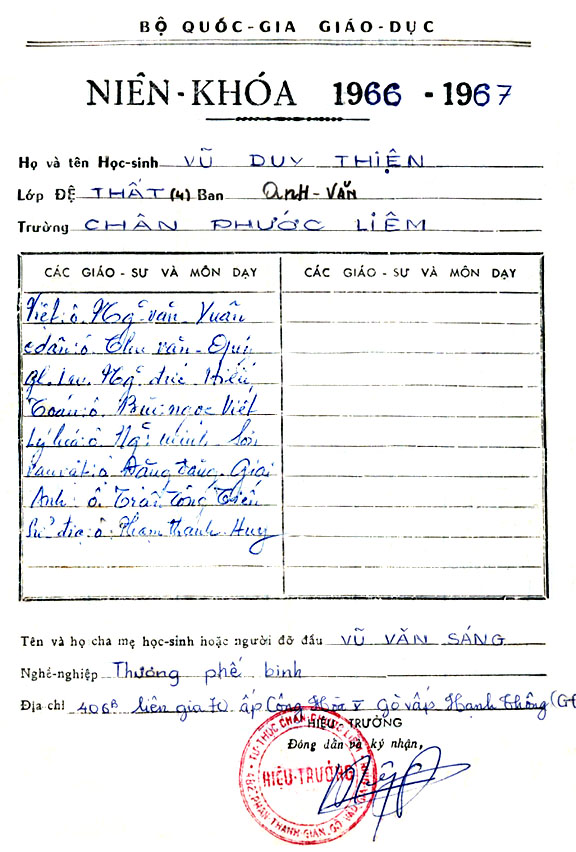 BỘ QUỐC-GIA GIÁO-DỤC
NIÊN-KHÓA 1966 - 1967
Họ và tên Học-sinh VŨ DUY THIỆN
Lớp ĐỆ THẤT (4) Ban Anh-VĂN
Trường CHÂN PHƯỚC LIÊM
CÁC GIÁO-SƯ VÀ MÔN DẠY
Việt: ô. Ng~ văn Xuân
c dân: ô. Chu văn Quý
Ng~ đức Hiếu
Toán: ô. Bùi ngọc Việt
Lý hóa: ô. Ng~ minh
ô. Đặng đăng Giai
Anh: ô. Trần Công Tiến
Sử địa: ô. Phạm thanh Huy
CÁC GIÁO-SƯ VÀ MÔN DẠY
Tên và họ cha mẹ học-sinh hoặc người đỡ đầu VŨ VĂN SÁNG
Nghề-nghiệp Thương phế binh
Địa chỉ 406B liên gia 70 ấp Cộng Hòa V Gò vấp Hạnh thông (Gđ
HIỆU TRƯỞNG
Đóng dấn và ký nhận,
TƯ-THỤC CHÂN PHƯỚC LIÊM
HIỆU-TRƯỞNG
PHAN THANH GIẢN, GÒ VẤP